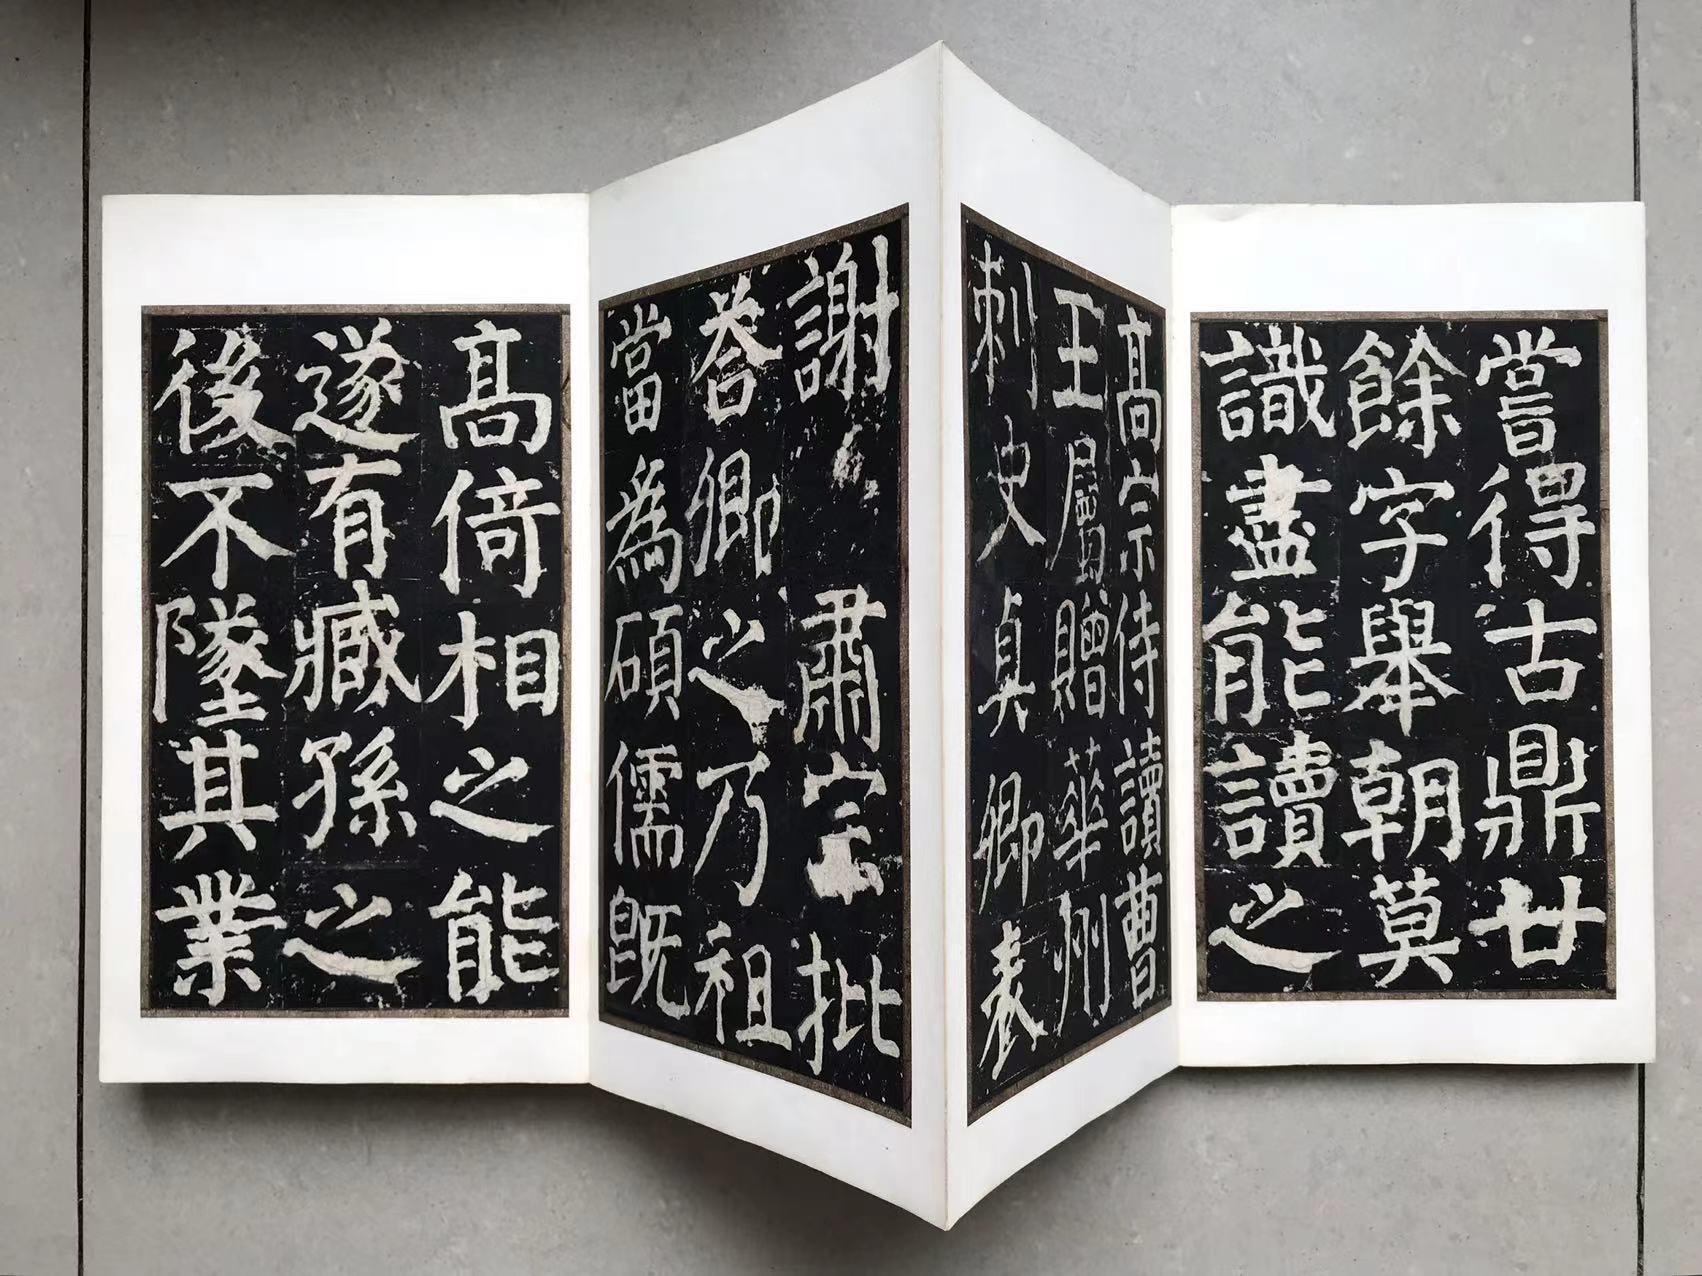 嘗得古鼎廿
餘字舉朝莫
識盡能讀之
髙宗侍讀曹
王屬贈華州
刺史真卿表
謝 肅宗批
荅卿之乃祖
當為碩儒既
髙倚相之能
遂有臧孫之
後不墜其業